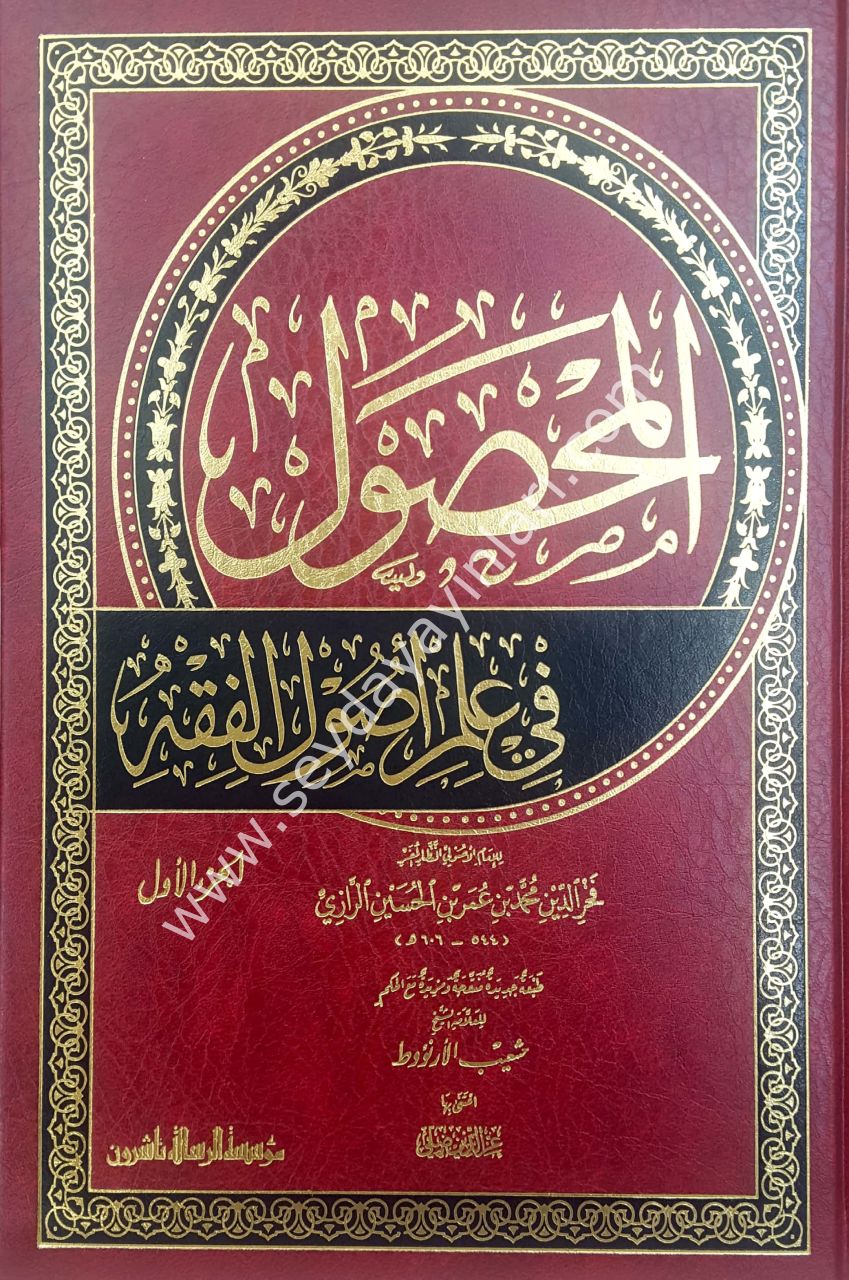 المحصول
في علم أصول الفقه
للإمام الأصولي النظار المفسر
فخر الدين محمد بن عمر بن الحسين الرازي
(٥٤٤ - ٦٠٦ هـ)
الجزء الأول
طبعة جديدة منقحة ومزيدة مع الحكم
للعلامة الشيخ
شعيب الأرنؤوط
اعتنى بها
مؤسسة الرسالة ناشرون
www.seydayayinlari.com